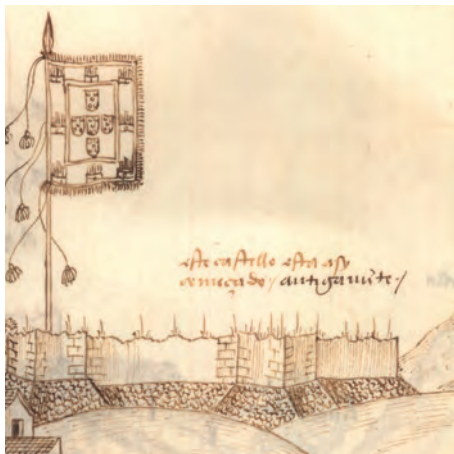 este castello esta asy
começado / antigamẽte /